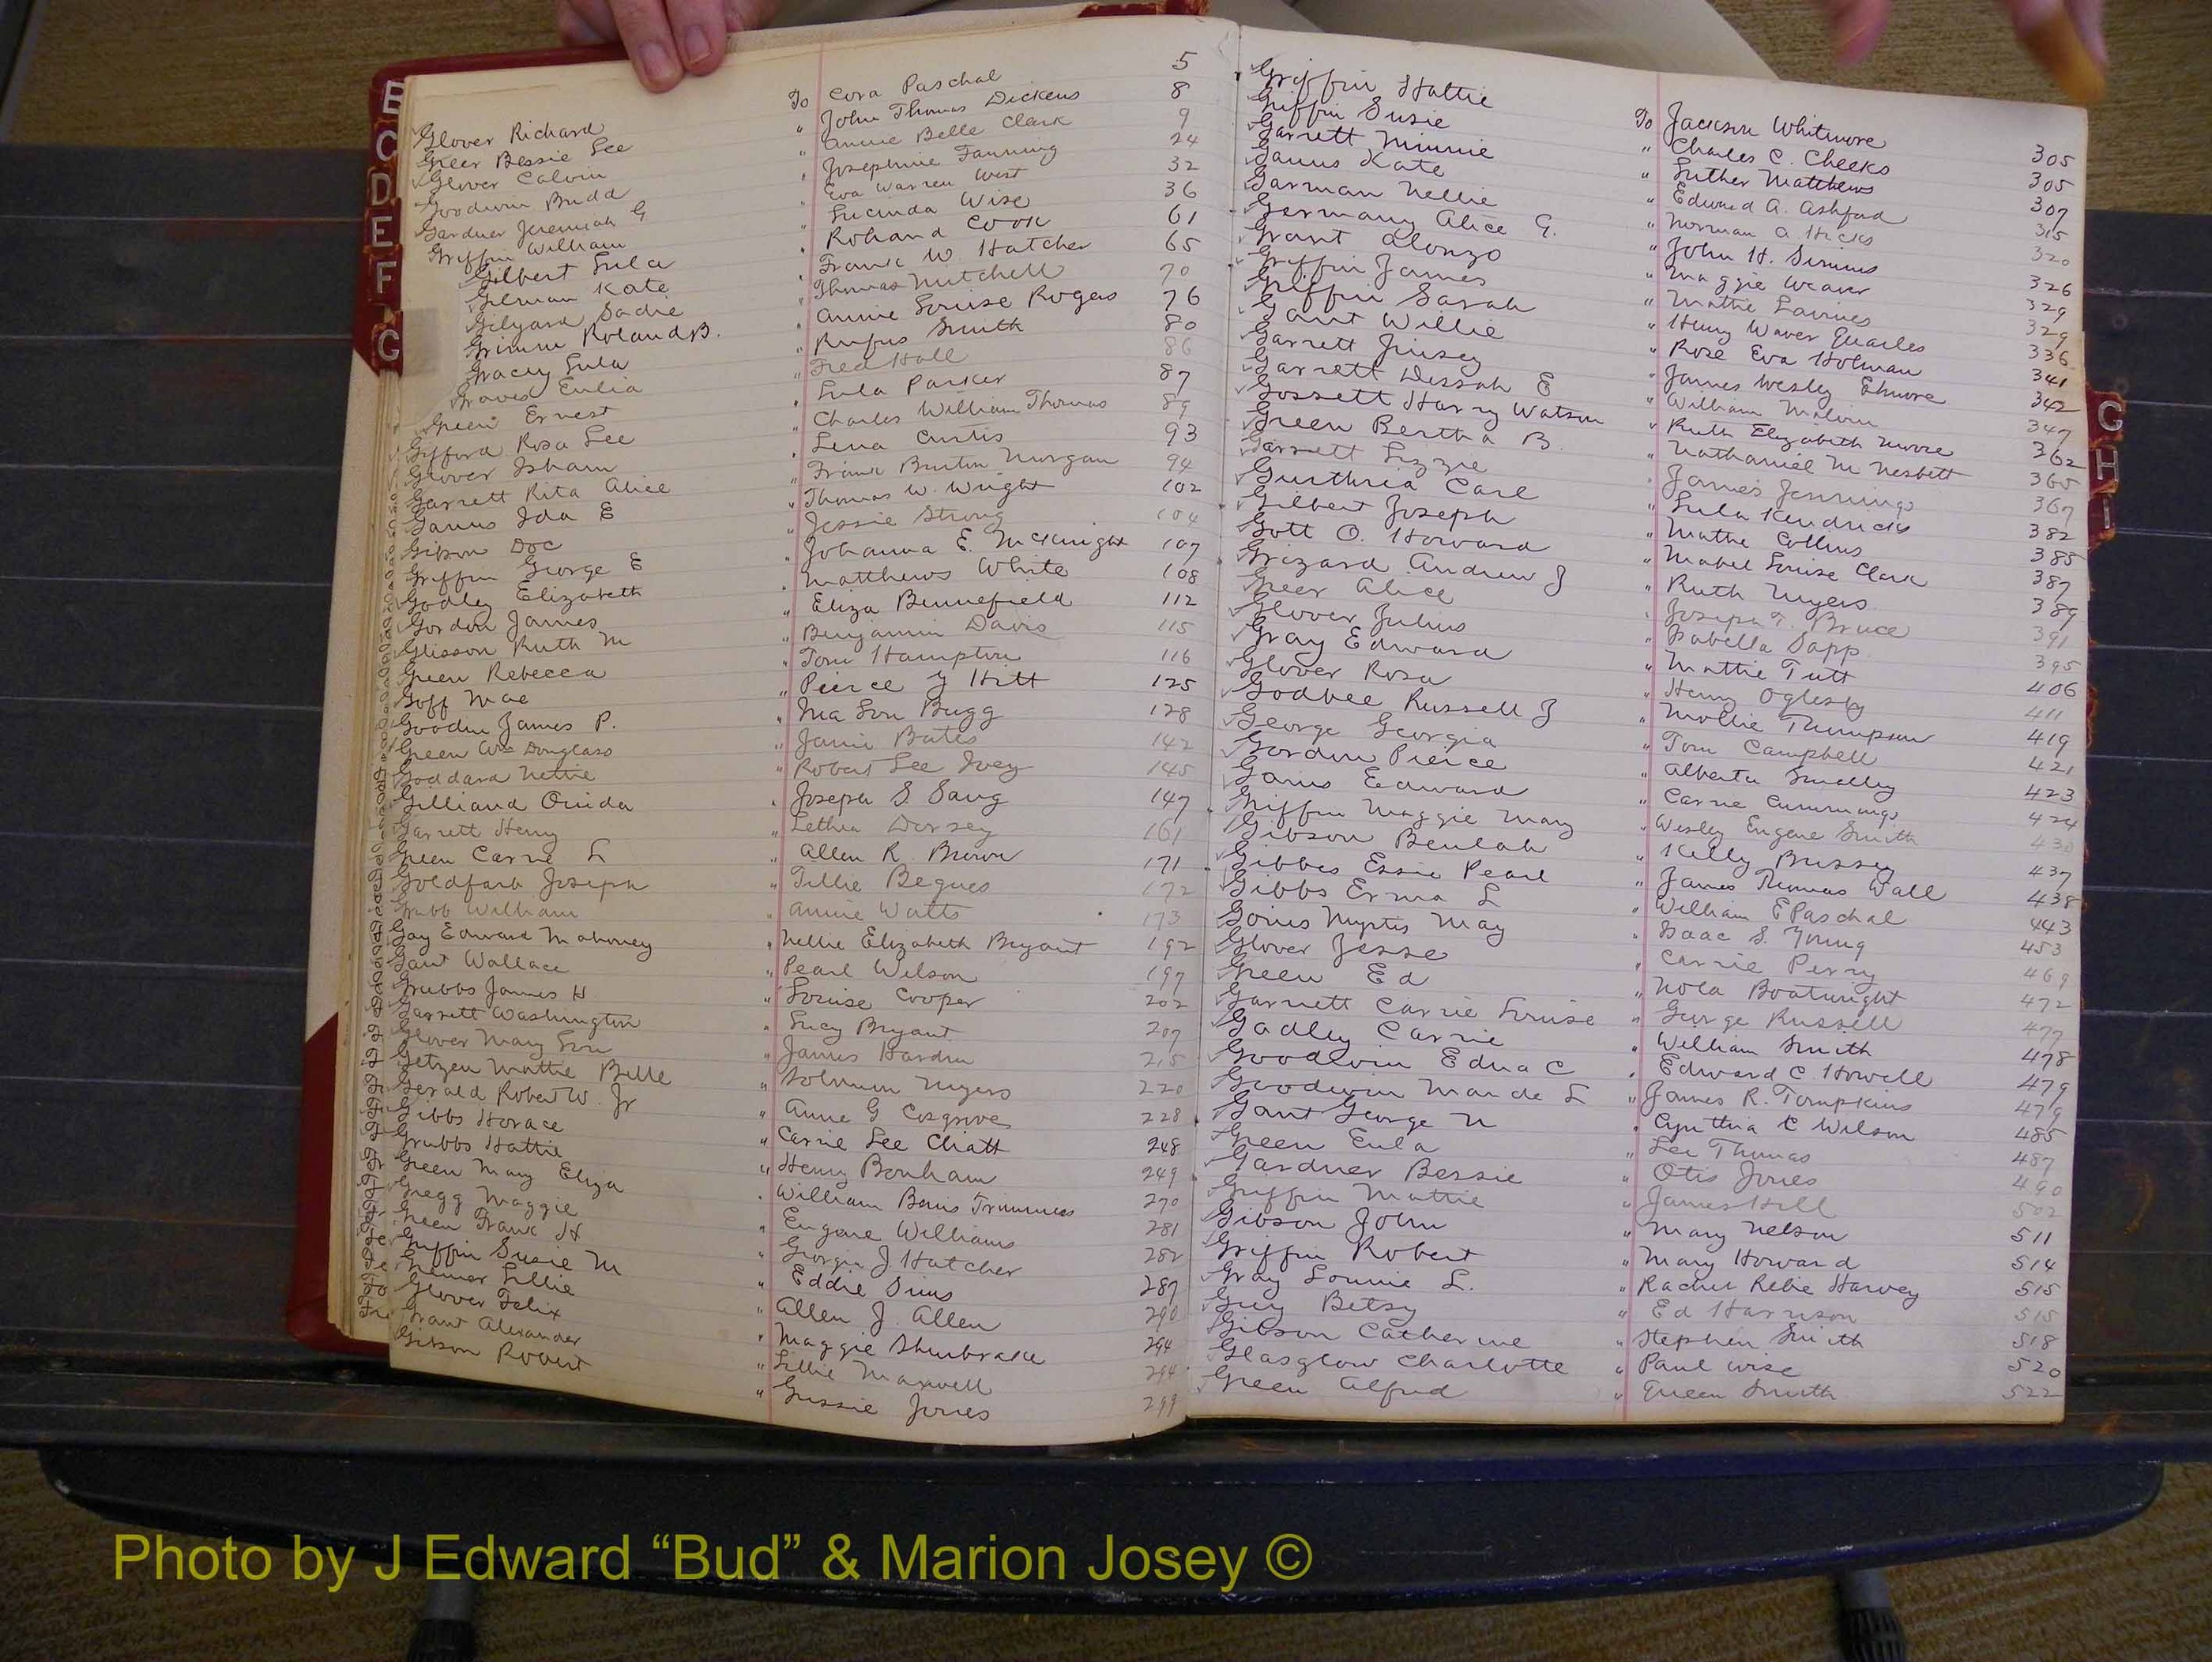 Glover Richard To Cora Paschal 5
Greer Bessie Lee " John Thomas Dickens 8
Glover Calvin " Annie Belle Clark 9
Goodwin Budd " Josephine Fanning 24
Gardner Jeremiah G " Eva Warren West 32
Griffin William " Lucinda Wise 36
Gilbert Lula " Roland Cook 61
Gilman Kate " Frank W. Hatcher 65
Gilyard Sadie " Thomas Mitchell 70
Grimm Roland B. " Annie Louise Rogers 76
Gracey Lula " Rufus Smith 80
Graves Eulia " Fred Hall 86
Green Ernest " Lula Parker 87
Gifford Rosa Lee " Charles William Thomas 89
Glover Isham " Lena Curtis 93
Garrett Rita Alice " Frank Burton Morgan 94
Ganus Ida E " Thomas W. Wright 102
Gibson Doc " Jessie Strong 104
Griffin George E " Johanna E. McKnight 107
Godley Elizabeth " Matthews White 108
Gordon James " Eliza Bennefield 112
Glisson Ruth M " Benjamin Davis 115
Green Rebecca " Tom Hampton 116
Goff Mae " Peirce Y Hitt 125
Goodin James P. " Ma Lou Bugg 128
Green Wm Douglass " Janie Bates 142
Goddard Nettie " Robert Lee Ivey 145
Gilliand Onida " Joseph S. Sang 147
Garrett Henry " Lethia Dorsey 161
Green Carrie L " Allen R. Brown 171
Goldfarb Joseph " Tillie Begues 172
Grubb William " Annie Watts 173
Gay Edward Mahoney " Nellie Elizabeth Bryant 192
Gant Wallace " Pearl Wilson 197
Grubbs James H " Louise Cooper 202
Garrett Washington " Lucy Bryant 207
Glover Mary Lou " James Hardin 215
Getzen Mattie Belle " Solomon Myers 220
Gerald Robert W. Jr " Anne G Cosgrove 228
Gibbs Horace " Carrie Lee Chiatt 248
Grubbs Hattie " Henry Bonham 249
Green Mary Eliza " William 270
Gregg Maggie " Eugene Williams 281
Green Frank H " Georgia J Hatcher 282
Griffin Susie M " Eddie Sims 287
Greiner Lillie " Allen J. Allen 290
Glover Felix " Maggie 294
Grant Alexander " Lillie Maxwell 294
Gibson Robert " Gussie Jones 299
Griffin Hattie To Jackson Whitmore 305
Griffin Susie " Charles C. Cheeks 305
Garrett Minnie " Luther Matthews 307
Ganus Kate " Edward A. Ashford 315
Garman Nellie " Norman A Hicks 320
Germany Alice G. " John H. Simms 326
Grant Alonzo " Maggie Weaver 329
Griffin James " Mattie Lanies 329
Griffin Sarah " Henry Waver Quarles 336
Gant Willie " Rose Eva Holman 341
Garrett Jinsey " James Wesley Elmore 342
Garrett Dessah E " William Malvin 347
Gossett Harry Watson " Ruth Elizabeth Moore 362
Green Bertha B. " Nathaniel M Nesbitt 365
Garrett Lizzie " James Jennings 367
Gurthria Carl " Lula Kendricks 382
Gilbert Joseph " Mathe Collins 385
Gott O. Howard " Mabel Louise Clark 387
Grizard Andrew J " Ruth Myers 389
Greer Alice " Joseph T. Bruce 391
Glover Julius " Isabella Sapp 395
Gray Edward " Mattie Tutt 406
Glover Rosa " Henry Oglesby 411
Godbee Russell J " Mollie Thompson 419
George Georgia " Tom Campbell 421
Gordon Pierce " Alberta Smalley 423
Ganus Edward " Carrie Cummings 424
Griffin Maggie Mary " Wesley Eugene Smith 430
Gibson Beulah " Kelly Bussey 437
Gibbes Essie Pearl " James Thomas Wall 438
Gibbs Erma L " William E Paschal 443
Goins Myrtis May " Isaac S. Young 453
Glover Jesse " Carrie Perry 469
Green Ed " Nola Boatwright 472
Garnett Carrie Louise " George Russell 477
Gadley Carrie " William Smith 478
Goodwin Edna C " Edward C. Howell 479
Goodwin Maude L " James R. Tompkins 479
Gant George N " Cynthia C Wilson 485
Green Eula " Lee Thomas 487
Gardner Bessie " Otis Jones 490
Griffin Mattie " James Hill 502
Gibson John " Mary Nelson 511
Griffin Robert " Mary Howard 514
Gray Lonnie L. " Rachel Rebie Harvey 515
Guy Betsy " Ed Harrison 515
Gibson Catherine " Stephen Smith 518
Glasglow Charlotte " Paul Wise 520
Green Alfred " Queen Smith 522
B
C
D
E
F
G
G
H
I
Photo by J Edward “Bud” & Marion Josey ©